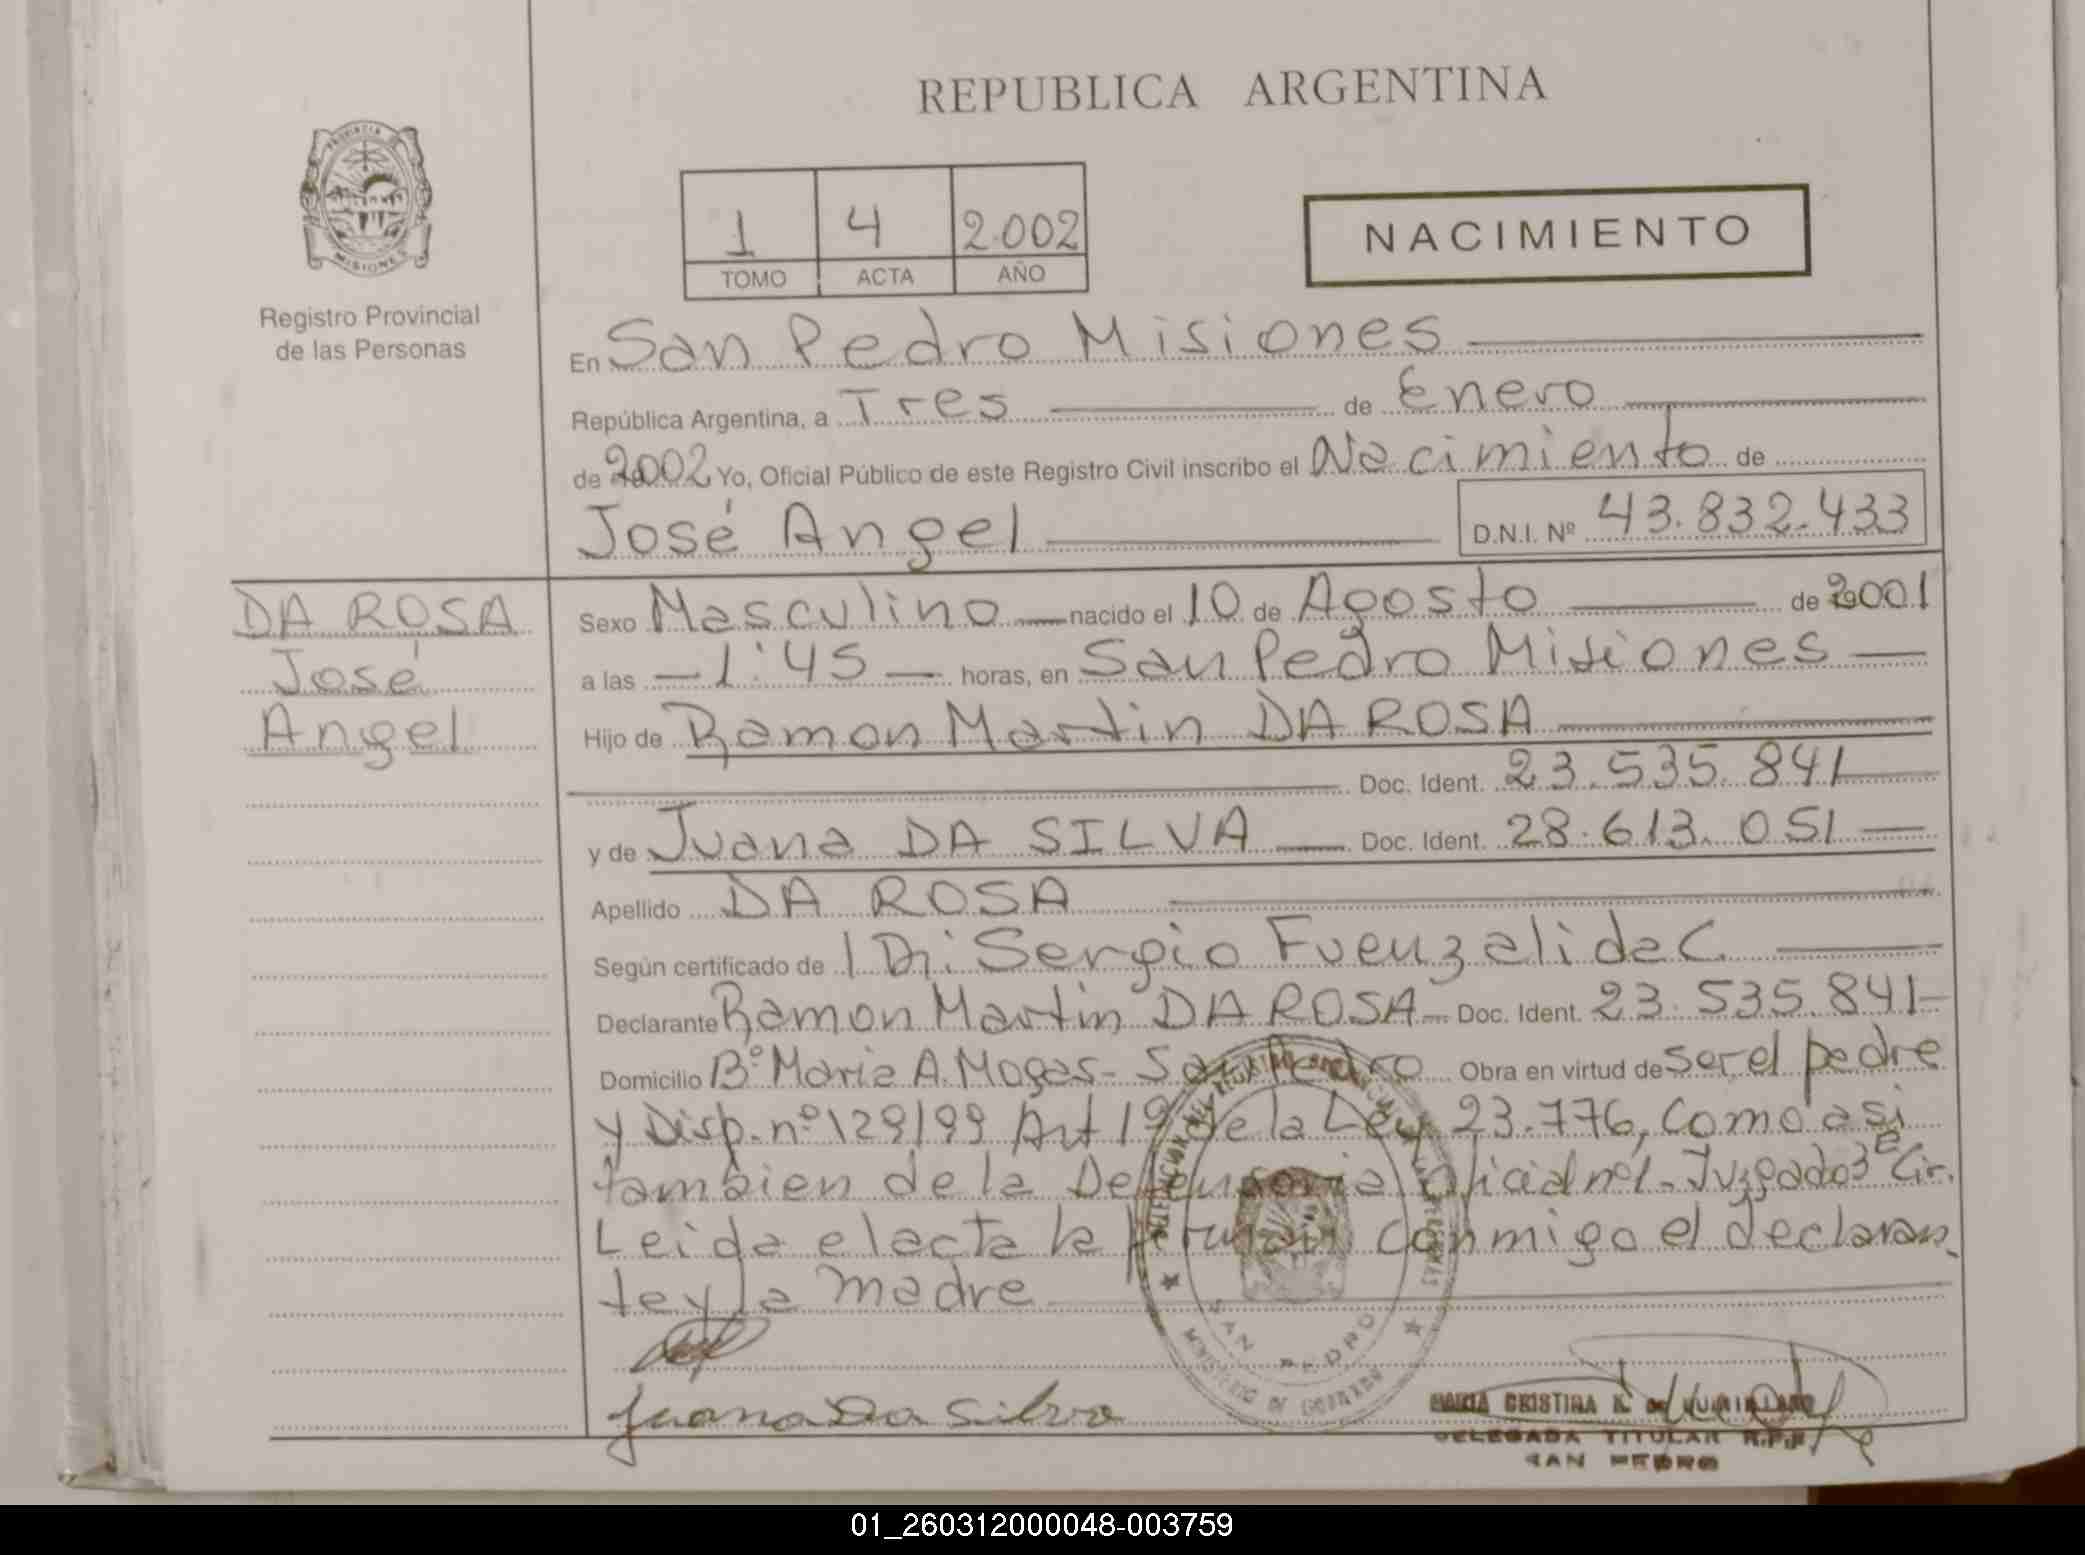 REPUBLICA ARGENTINA
PROVINCIA DE
MISIONES
Registro Provincial
de las Personas
1 4 2.002
TOMO ACTA AÑO
NACIMIENTO
En San Pedro Misiones
República Argentina, a Tres de Enero
de 2002 Yo, Oficial Público de este Registro Civil inscribo el Nacimiento de
José Angel D.N.I. Nº 43.832.433
DA ROSA
José
Angel
Sexo Masculino nacido el 10 de Agosto de 2001
a las 1:45 horas, en San Pedro Misiones
Hijo de Ramon Martin DA ROSA
Doc. Ident. 23.535.841
y de Juana DA SILVA Doc. Ident. 28.613.051
Apellido DA ROSA
Según certificado de Dr. Sergio Fuenzalida C.
Declarante Ramon Martin DA ROSA Doc. Ident. 23.535.841
Domicilio Bº Maria A. Mogas - San Pedro Obra en virtud de ser el padre
y Disp. nº 129/99 Art 1º de la Ley 23.776, como asi
tambien de la Defensoria Oficial nº1 - Juzgado 3ª Cir.
Leida el acta la firman conmigo el declaran
te y la madre
SAN PEDRO
MINISTERIO DE GOBIERNO
Juana Da Silva
MARIA CRISTINA
DELEGADA TITULAR R.P.P.
SAN PEDRO
01_260312000048-003759